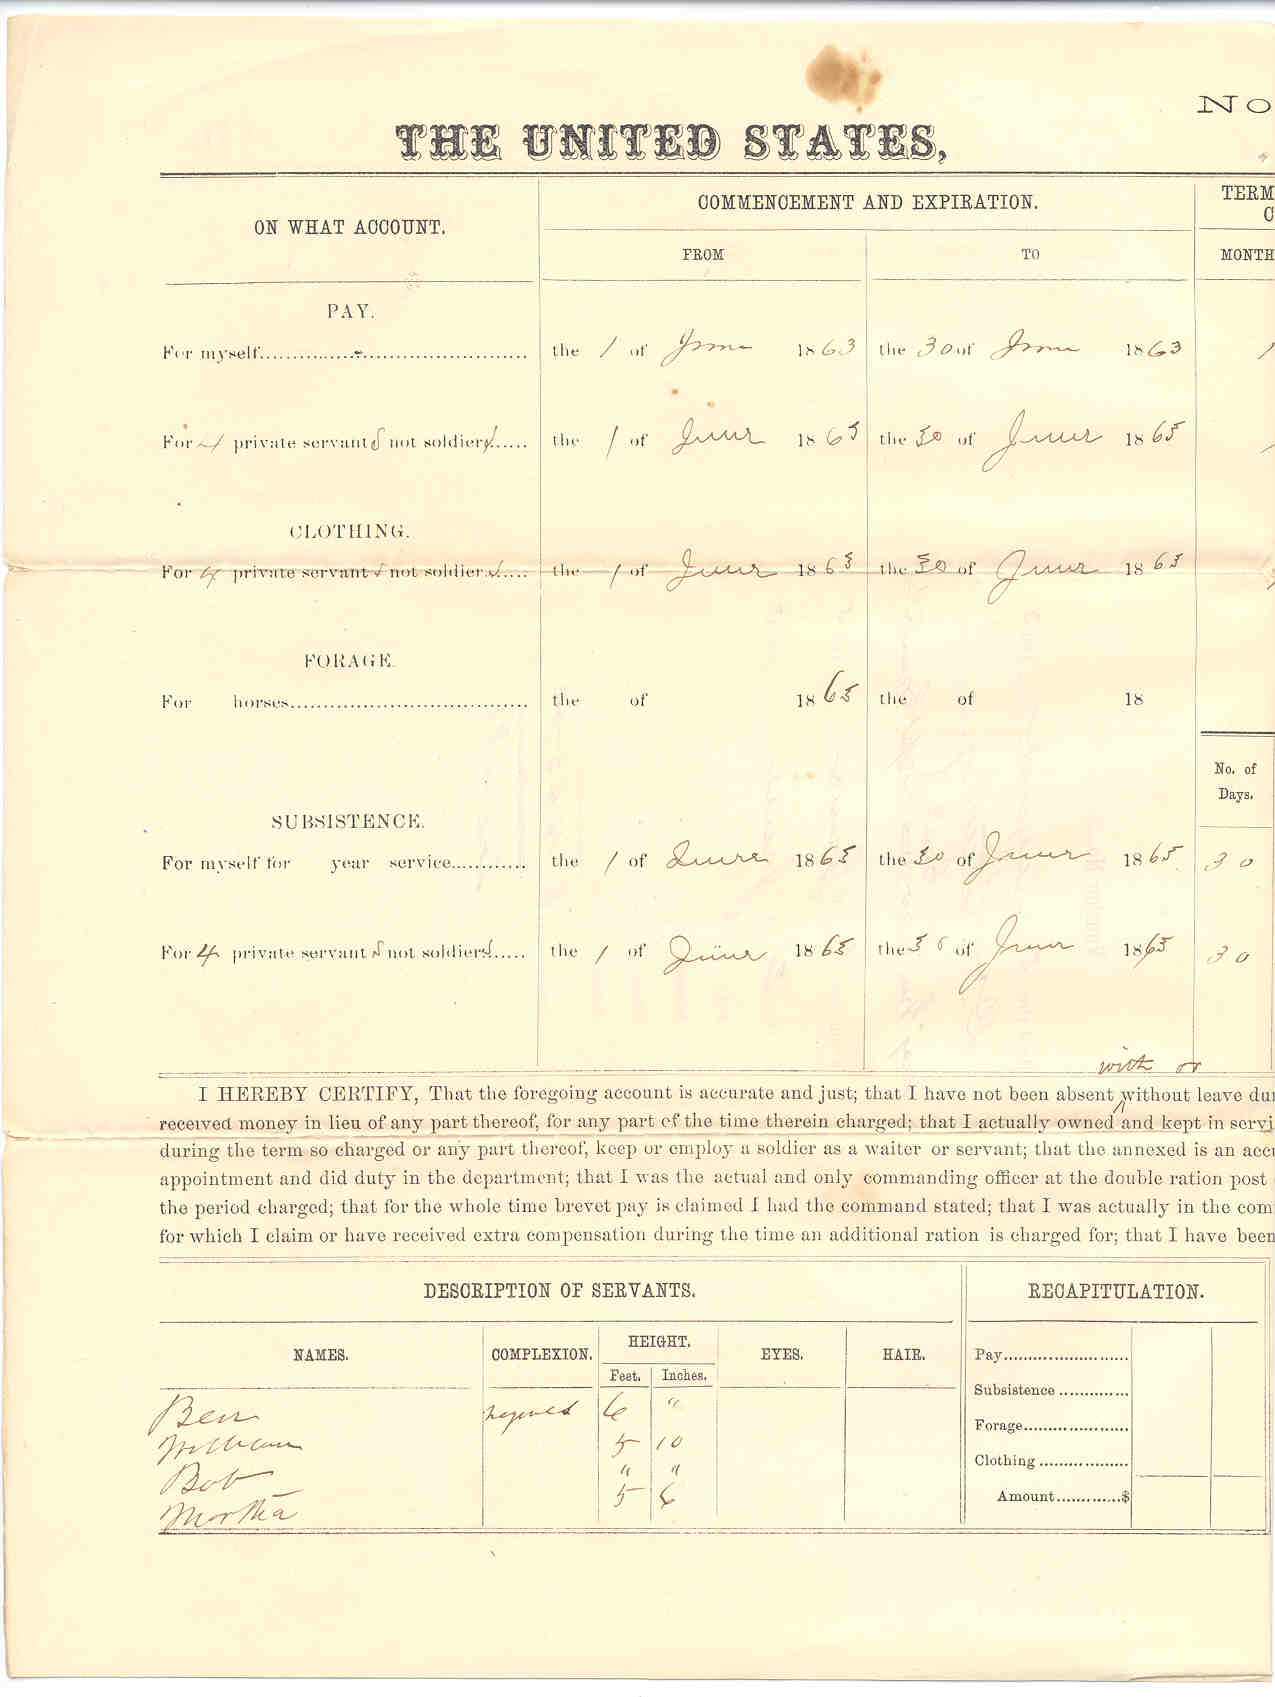 No
THE UNITED STATES,
ON WHAT ACCOUNT.
COMMENCEMENT AND EXPIRATION.
TERM
C
FROM
TO
MONTH
PAY.
For myself............................................ the 1 of June 1863 the 30 of June 1863 1
For 4 private servants not soldiers..... the 1 of June 1865 the 30 of June 1865
CLOTHING.
For 4 private servants not soldiers.... the 1 of June 1865 the 30 of June 1865
FORAGE.
For horses.................................... the of 1865 the of 18
No. of
Days.
SUBSISTENCE.
For myself for year service............ the 1 of June 1865 the 30 of June 1865. 30
For 4 private servants not soldiers..... the 1 of June 1865 the 30 of June 1865 30
with or
I HEREBY CERTIFY, That the foregoing account is accurate and just; that I have not been absent without leave du
received money in lieu of any part thereof, for any part of the time therein charged; that I actually owned and kept in servi
during the term so charged or any part thereof, keep or employ a soldier as a waiter or servant; that the annexed is an acc
appointment and did duty in the department; that I was the actual and only commanding officer at the double ration post
the period charged; that for the whole time brevet pay is claimed I had the command stated; that I was actually in the com
for which I claim or have received extra compensation during the time an additional ration is charged for; that I have been
DESCRIPTION OF SERVANTS.
RECAPITULATION.
NAMES. COMPLEXION. HEIGHT. EYES. HAIR.
Feet. Inches.
Pay..........................
Subsistence ..............
Forage......................
Clothing ..................
Amount.............$
Ben 6 "
William 5 10
Bob " "
Martha 5 6